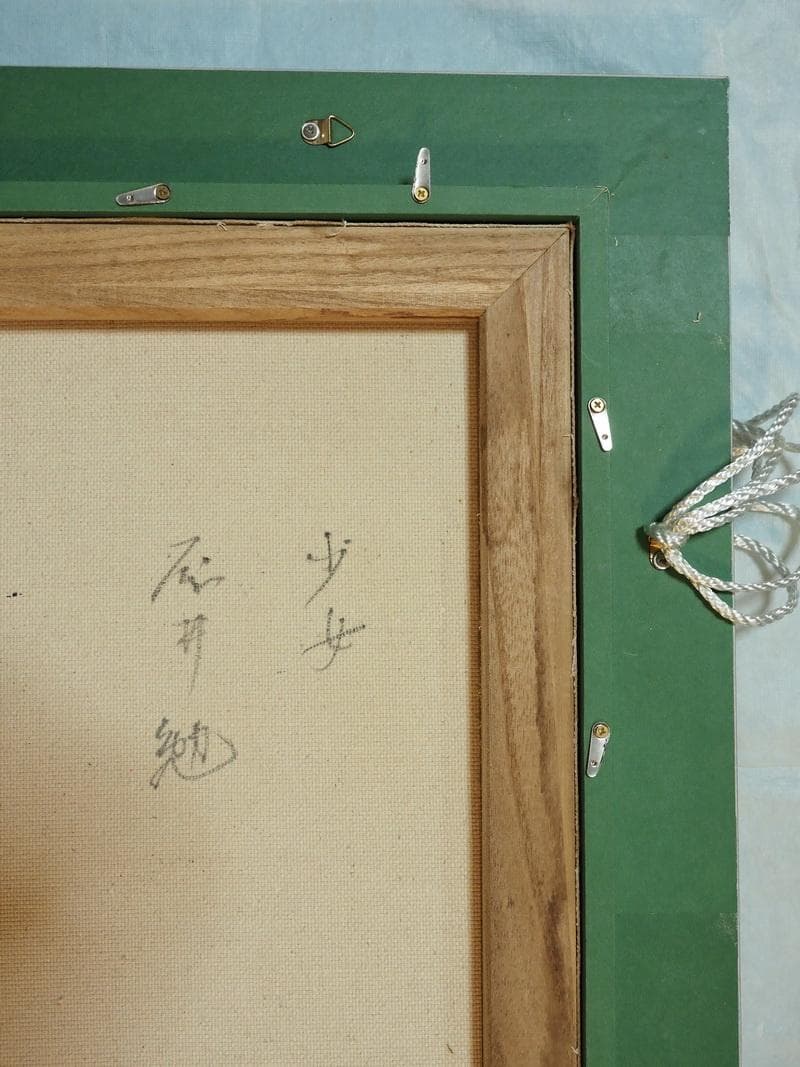 少女
井勉